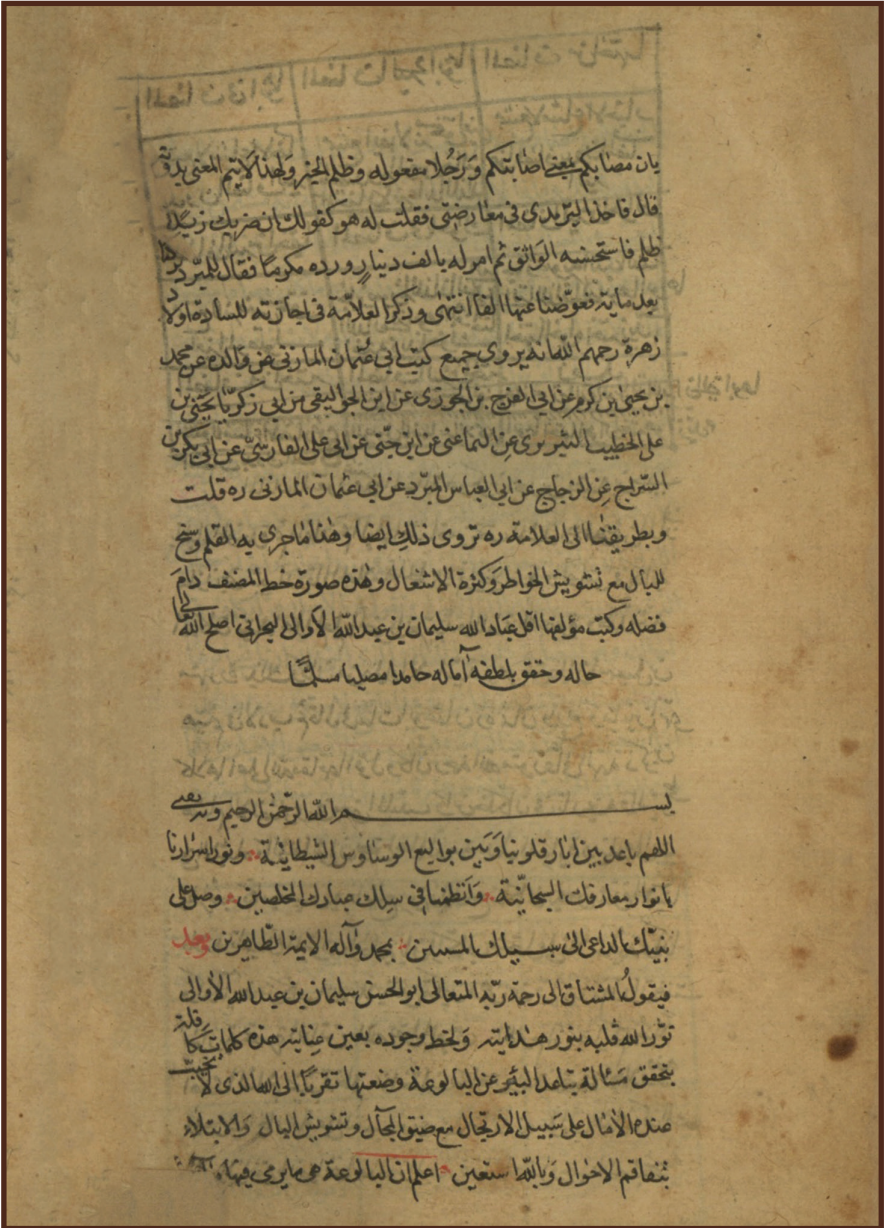 بان مصابكم بمعنى اصابتكم وَرَجُلا مفعوله وظلم الخبر وَلهذا لا يتم المعنى بدونه
قال فاخذ اليزيدى فى معارضتى فقلت له هو كقولك ان ضربك زيدًا
ظلم فاستحسنه الوَاثق ثم امر له بالف دينارٍ ورده مكرمًا فقال للمبرّد رددنا
لله مائة فعوّضنا عنها الفًا انتهى وذكر العلاّمة فى اجازته للسادة اولاد
زهرة رحمهم الله انه يروى جميع كتب ابى عُثمان المازنى عن وَالده عن محمد
بن يحيى بن كرم عن ابى الفرج بن الجوزى عن ابن الجواليقى عن ابى زكريّا يَحيَى بن
على الخطيب التبريزى عن الثمانينى عن ابن جنّى عن ابى على الفارسىّ عن ابى بكر بن
السّراج عن الزجاج عن ابى العباس المبرّد عن ابى عثمان المازنى ره قلت
وبطريقنا الى العلامة ره نروى ذلك ايضا وهذا ما جرى به القلم وسنح
للبال مع تشويش الخواطر وَكثرة الاشغال وهذه صورة خط المصنف دامَ
فضله وكتب مؤلفها اقل عباد الله سليمان بن عبد الله الاوالى البحرانى اصلح الله تعالى
حاله وحقق بلطفه آماله حامدا مصليا مسلمًا
بسم الله الرّحمن الرحيم وبه نستعين
اللهم باعد بين ابار قلوبنا وَبَين بواليع الوساوس الشيطانيّة ونور اسرارنا
بانوار معارفك السبحانيّة وَانظمنا فى سلك عبادك المخلصين وصل على
نبيّك الداعى الى سبيلك المبين محمد وَآله الايمة الطّاهرين وبعد
فيقول المشتاق الى رحمة ربّه المتعالى ابو الحسن سليمان بن عبد الله الأوالى
نوّر الله قلبه بنور هدايته وَلحظ وجوده بعين عنايته هذه كلمات كافلة
بتحقق مَسئالة تباعد البئر عن البالوعة وضعتها تقربًا الى الله الذى لا تخيب
عنده الآمال على سَبيل الارتجال مع ضيق المجآل وتشويش البال وَالابتلاء
بتفاقم الاحوال وَبالله استعين اعلم ان البالوعة هى ما يرمى فيها